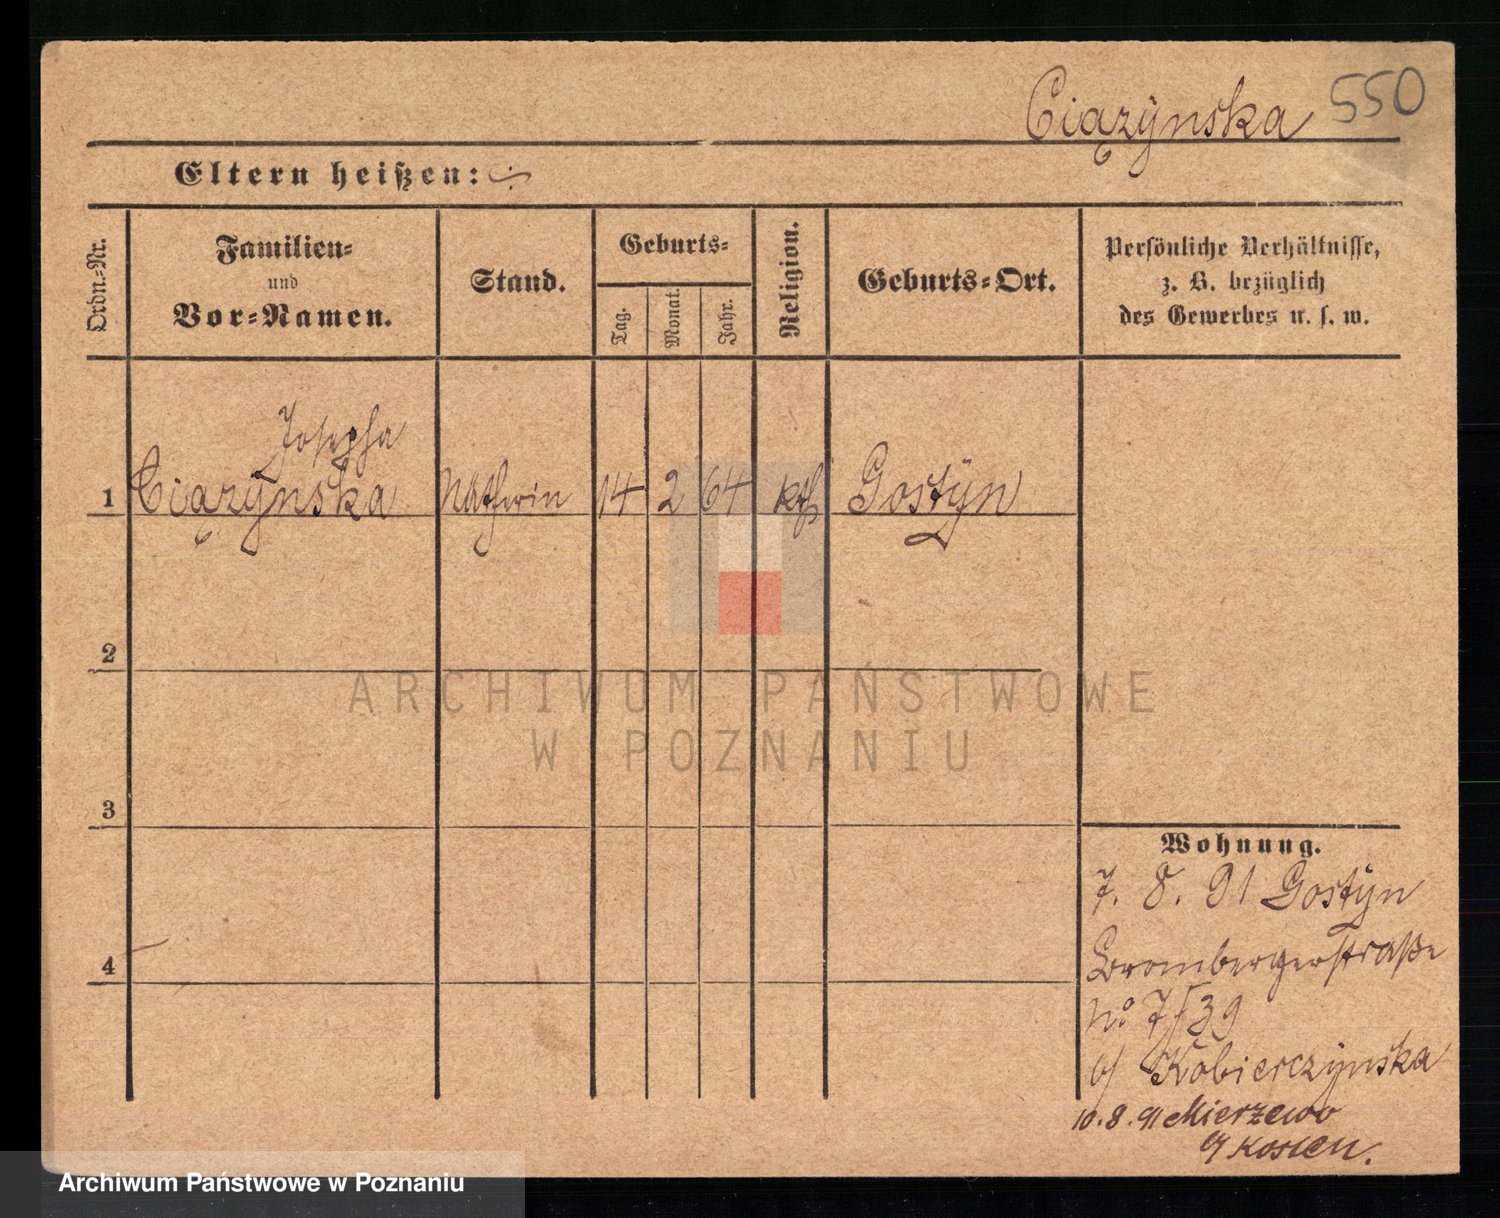 Ciązÿnska 550
Eltern heißen:
Ordn.-Nr.
Familien-
und
Vor-Namen.
Stand.
Geburts-
Tag.
Monat.
Jahr.
Religion.
Geburts-Ort.
Persönliche Verhältnisse,
z. B. bezüglich
des Gewerbes u. s. w.
Josepha
1 Ciązÿnska Näherin 14 2 64 kth Gostÿn
2
3
4
Wohnung.
7. 8. 91 Gostÿn
Brombergerstraße
No 7/39
b/ Kobierczÿnska
10.8.91 Mierzewo
Kosten.
ARCHIWUM PAŃSTWOWE
W POZNANIU
Archiwum Państwowe w Poznaniu